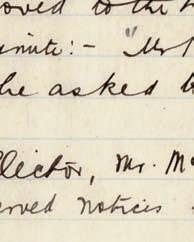 oved to the
inute:- "Mr
he asked
llector, Mr. M
erved notices